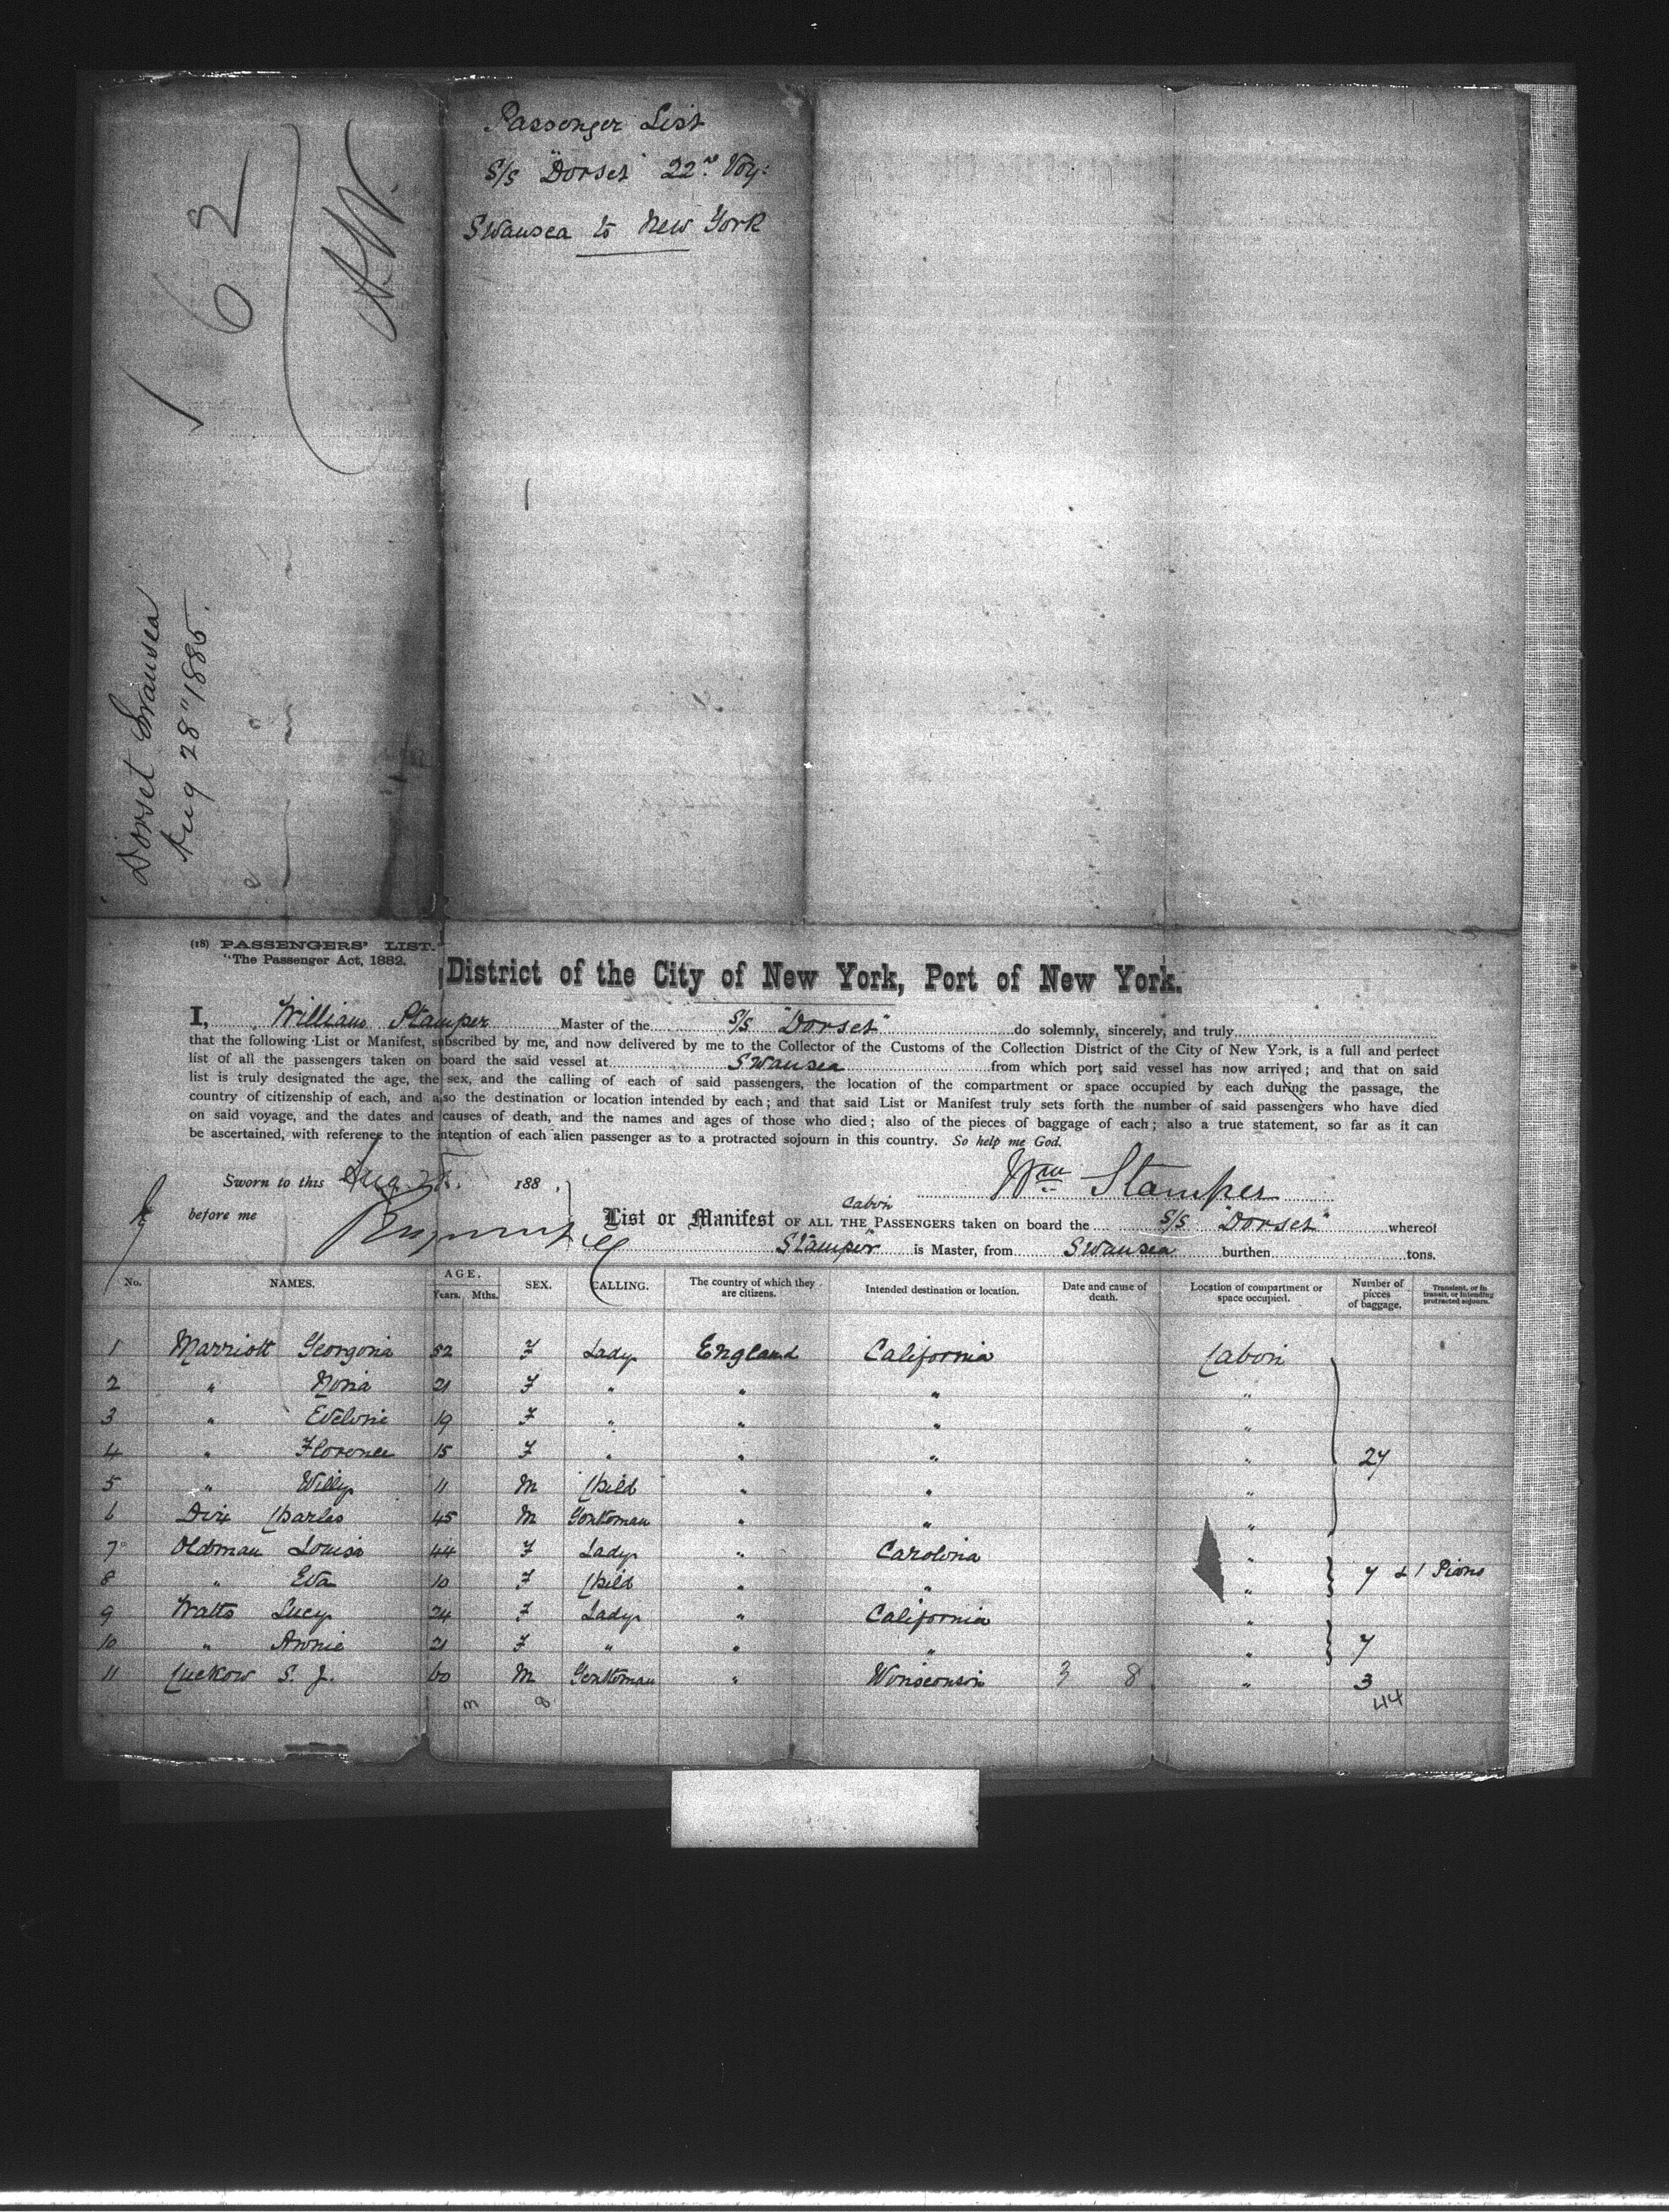 1 62
A.W.
Dorset Swansea
Aug 28" 1885.
Passenger List
S/S "Dorset" 22nd Voy:
Swansea to New York
(18) PASSENGERS' LIST.
"The Passenger Act, 1882.
District of the City of New York, Port of New York.
I, William Stamper Master of the S/S "Dorset" do solemnly, sincerely, and truly
that the following List or Manifest, subscribed by me, and now delivered by me to the Collector of the Customs of the Collection District of the City of New York, is a full and perfect
list of all the passengers taken on board the said vessel at Swansea from which port said vessel has now arrived; and that on said
list is truly designated the age, the sex, and the calling of each of said passengers, the location of the compartment or space occupied by each during the passage, the
country of citizenship of each, and also the destination or location intended by each; and that said List or Manifest truly sets forth the number of said passengers who have died
on said voyage, and the dates and causes of death, and the names and ages of those who died; also of the pieces of baggage of each; also a true statement, so far as it can
be ascertained, with reference to the intention of each alien passenger as to a protracted sojourn in this country. So help me God.
Sworn to this Aug 188 .
Wm Stamper
before me
Cabin
List or Manifest OF ALL THE PASSENGERS taken on board the S/S "Dorset" whereof
Stamper is Master, from Swansea burthen tons.
No. NAMES. AGE. Years. Mths. SEX. CALLING. The country of which they are citizens. Intended destination or location. Date and cause of death. Location of compartment or space occupied. Number of pieces of baggage. Transient, or in transit, or intending protracted sojourn.
1 Marriott Georgina 52 F Lady England California Cabin
2 " Nona 21 F " " " "
3 " Eveline 19 F " " " "
4 " Florence 15 F " " " " 27
5 " Willy 11 M Child " " "
6 Dix Charles 45 M Gentleman " " "
7 Oldman Louisa 44 F Lady " Carolina "
8 " Eva 10 F Child " " " 7 & 1 Piano
9 Watts Lucy 24 F Lady " California "
10 " Annie 21 F " " " " 7
11 Luckow S. J. 60 M Gentleman " Wonsconsin 3 8 " 3
3 8 44